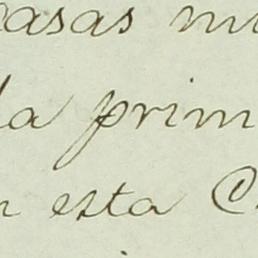 casas m
la prim
n esta C